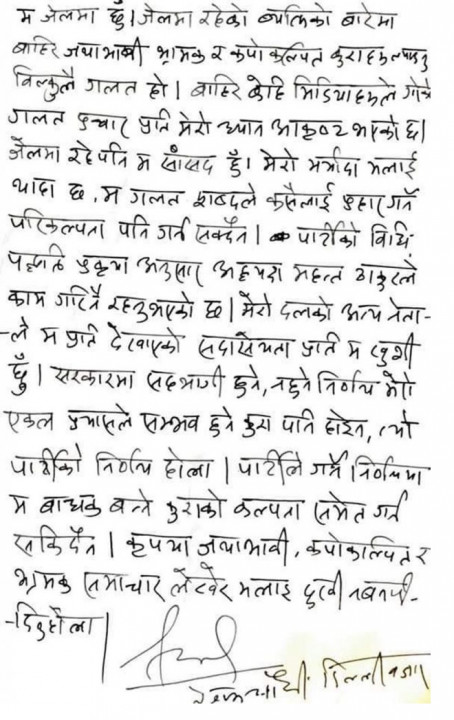 म जेलमा छुँ। जेलमा रहेको ब्यक्तिको बारेमा
बाहिर जथाभाबी भ्रामक र कपोकल्पित कुरा
बिल्कुलै गलत हो। बाहिर केहि मिडियाहरूले गरेको
गलत प्रचार प्रति मेरो ध्यान आकृष्ट भएको छ।
जेलमा रहेपनि म सांसद हुँ। मेरो मर्यादा मलाई
थाहा छ, म गलत शब्दले कसैलाई प्रहार गर्ने
परिकल्पना पनि गर्न सक्दैन। पार्टीको बिधि
पद्धति प्रकृया अनुसार अध्यक्ष महन्त ठाकुरले
काम गरिनै रहनुभएको छ। मेरो दलको अन्य नेता-
-ले म प्रति देखाएको सदासयता प्रति म खुशी
छुँ। सरकारमा सहभागी हुने, नहुने निर्णय मेरो
एकल प्रयासले सम्भव हुने कुरा पनि होईन, त्यो
पार्टीको निर्णय होला। पार्टीले गर्ने निर्णयमा
म बाधक बन्ने कुराको कल्पना समेत गर्न
सकिदैन। कृपया जथाभाबी, कपोकल्पित र
भ्रामक समाचार लेखेर मलाइ दुखी नबनाई-
-दिनुहोला।
रेशम चौधरी डिल्लीबजार